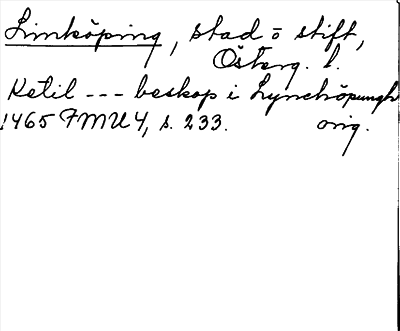 Linköping, stad o stift,
Österg. l.
Ketil --- beskop i Lynchöpungh
1465 FMU 4, s. 233. orig.